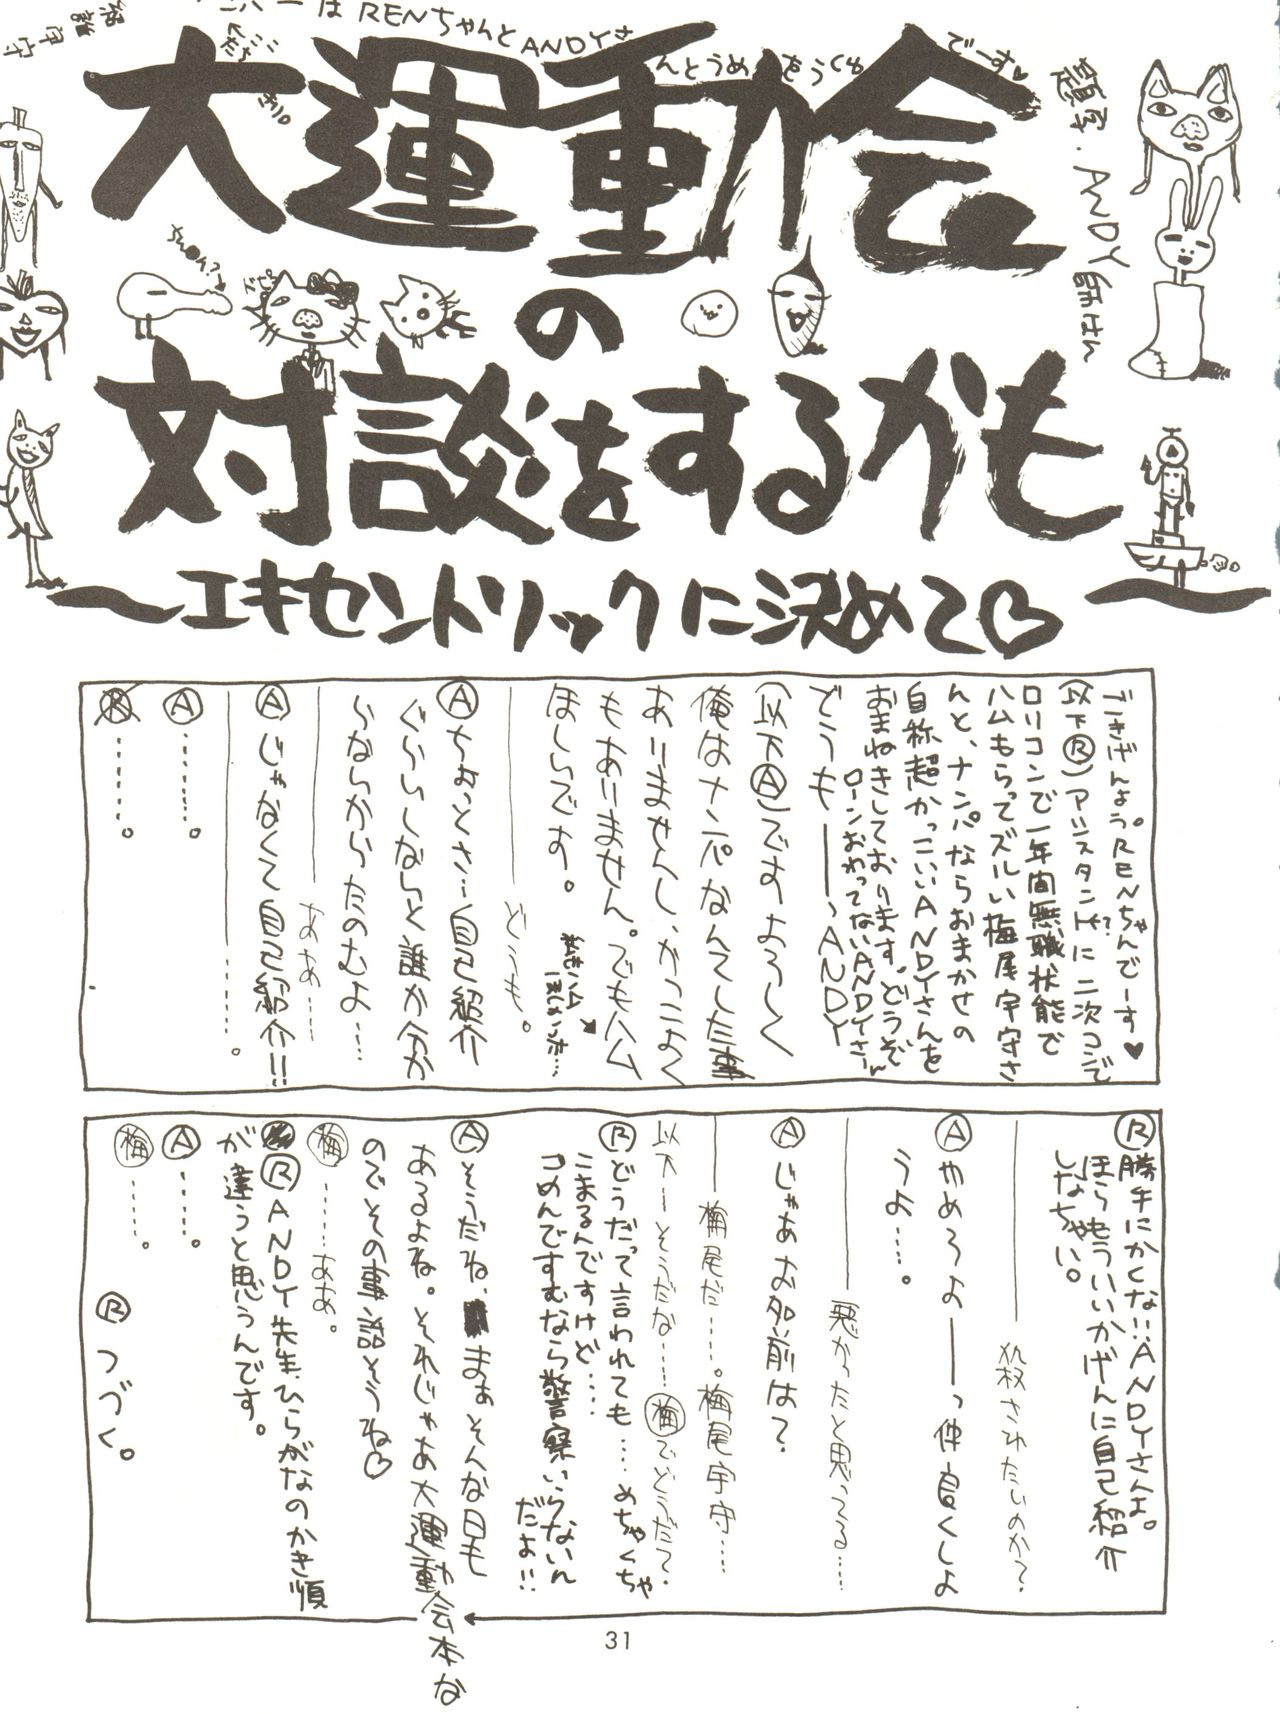 ンバーはRENちゃんとANDYさ
んとうめ
でーす♡
題字・ANDY師はん
大運動会
の
対談をするかも
〜エキセントリックに決めて♡〜
ごきげんよう。RENちゃんでーす♥
(以下Ⓡ)アシスタントに二次コンで
ロリコンで一年間無職状態で
ハムもらってズルい梅尾宇守さ
んと、ナンパならおまかせの
自称超かっこいいANDYさんを
おまねきしております。どうぞ
ローンおわってないANDYさん
どうもーーっANDY
(以下Ⓐ)です。よろしく
俺はナンパなんてした事
ありませんし、かっこよく
もありません。でもハム
ほしいです。
――――どうも。
Ⓐちょっとさ…自己紹介
ぐらいしないと誰か分か
らないからたのむよ…
――――ああ……
Ⓐじゃなくて自己紹介!!
――――………。
Ⓐ………。
Ⓡ………。
Ⓡ勝手にかくな!!ANDYさんよ。
ほらもういいかげんに自己紹介
しなちゃい。
――――殺されたいのか?
Ⓐやめろよーーっ仲良くしよ
うよ……。
――――悪かったと思ってる…
Ⓐじゃあお名前は?
――――梅尾だ……。梅尾宇守……
以下ーそうだな……㊗梅でどうだ?。
Ⓡどうだって言われても……めちゃくちゃ
こまるんですけど…
ごめんですむなら警察いらないん
だよ!!
Ⓐそうだね、まぁそんな日も
あるよね。それじゃあ大運動会本な
のでその事話そうね♡
梅……ああ。
ⓇANDY先生、ひらがなのかき順
が違うと思うんです。
Ⓐ……。
梅……。
Ⓡつづく。
31